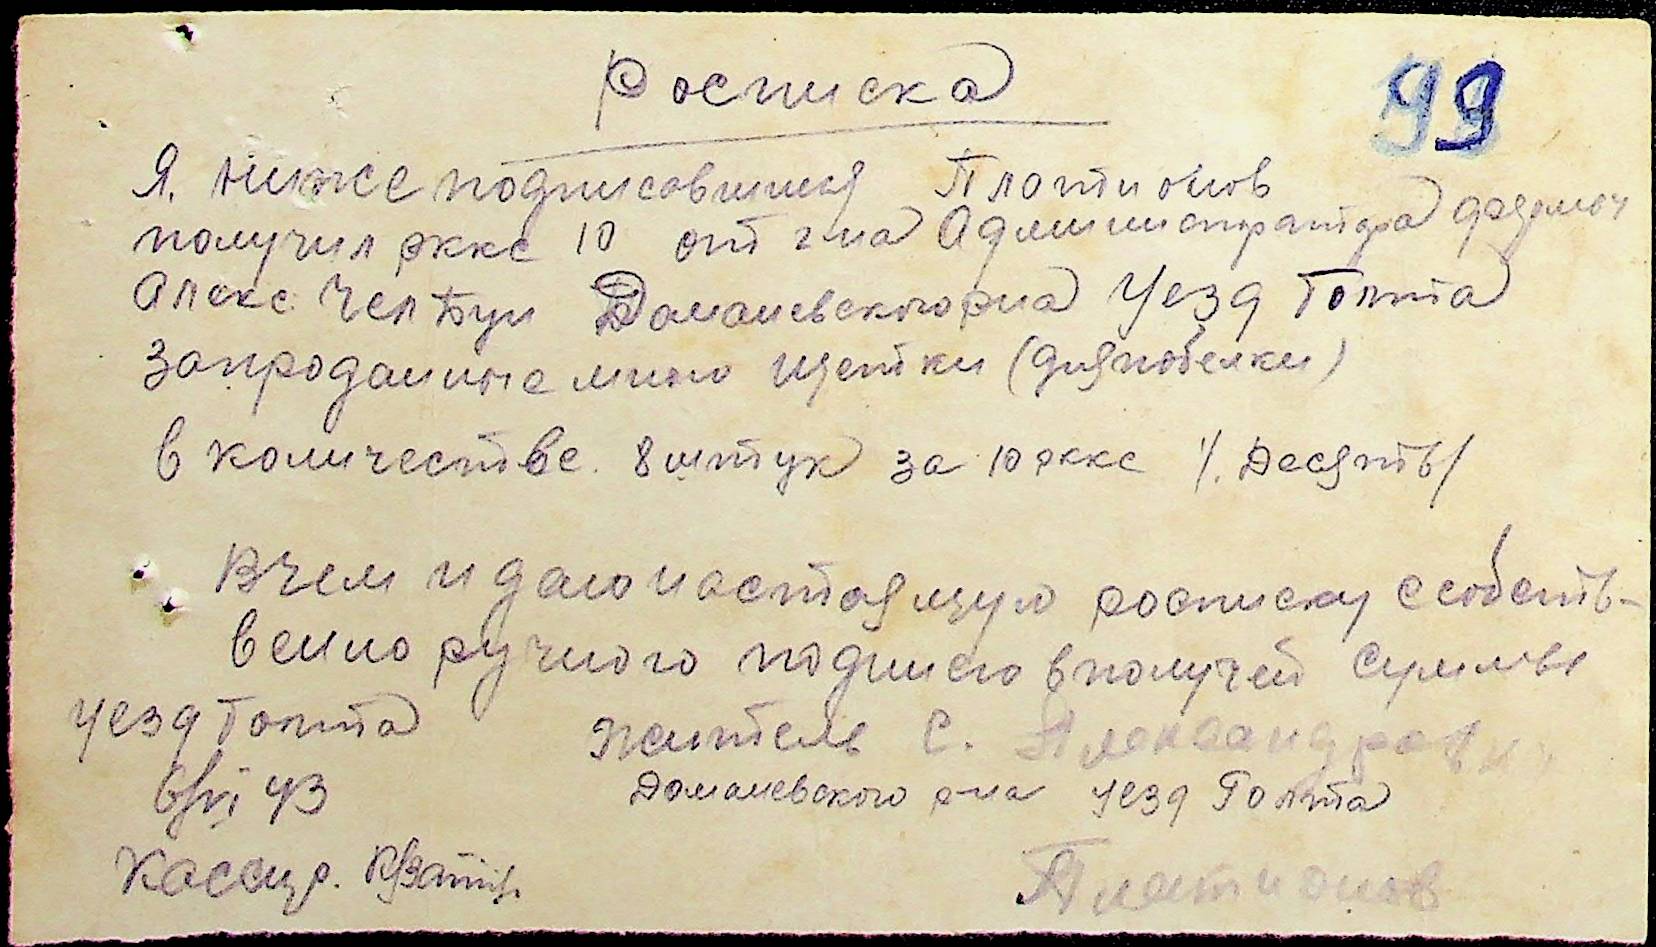 Росписка
99
Я. ниже подписавшися Плотионов
получил рккс 10 от г-на Администратора
Алекс. Челбул Доманевского р-на Уезд Голта
за проданные мною щетки (для побелки)
в количестве. 8 штук за 10 рккс /. Десять/
В чем и даю настоящую росписку с собств-
венно ручного подписю в получен суммы
Уезд Голта Житель С. Александровки
6/VI 43 Доманевского р-на Уезд Голта
Кассир. Плотионов